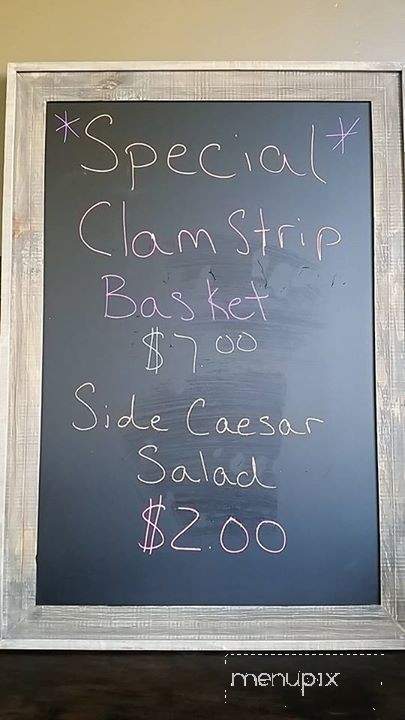 *Special*
Clam Strip
Basket
$7.00
Side Caesar
Salad
$2.00
menupix